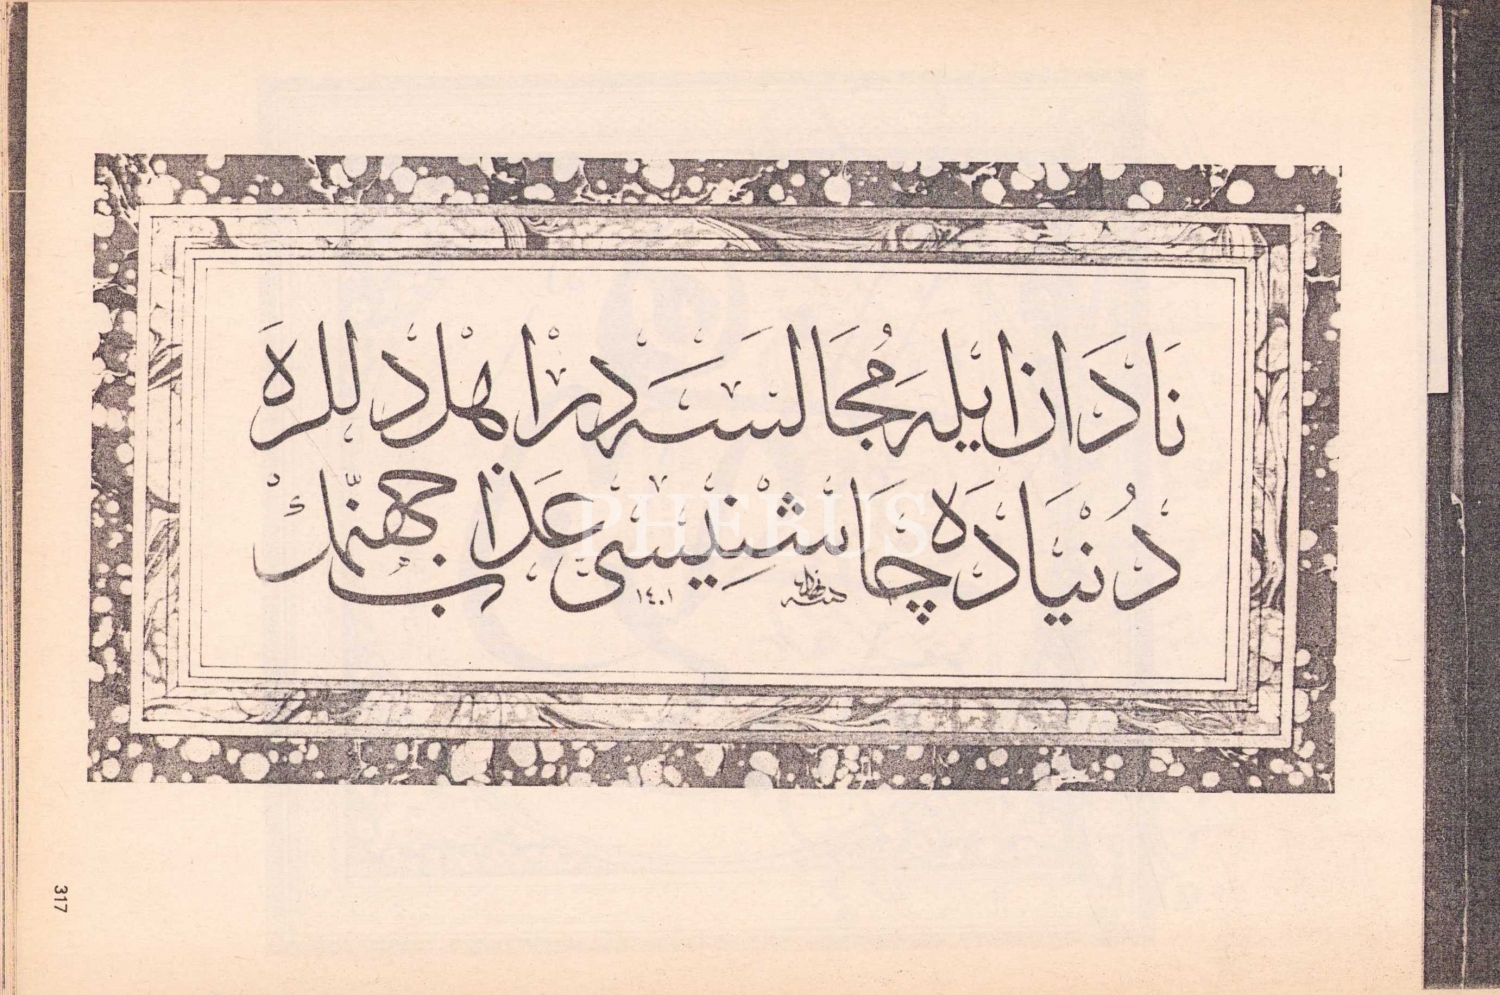 نادان ایله مُجَالَسَه در اهل دللره
دُنیَادَه چَاشنِیسی عَذَاب جهنّمك
١٤٠١
PHEBUS
317